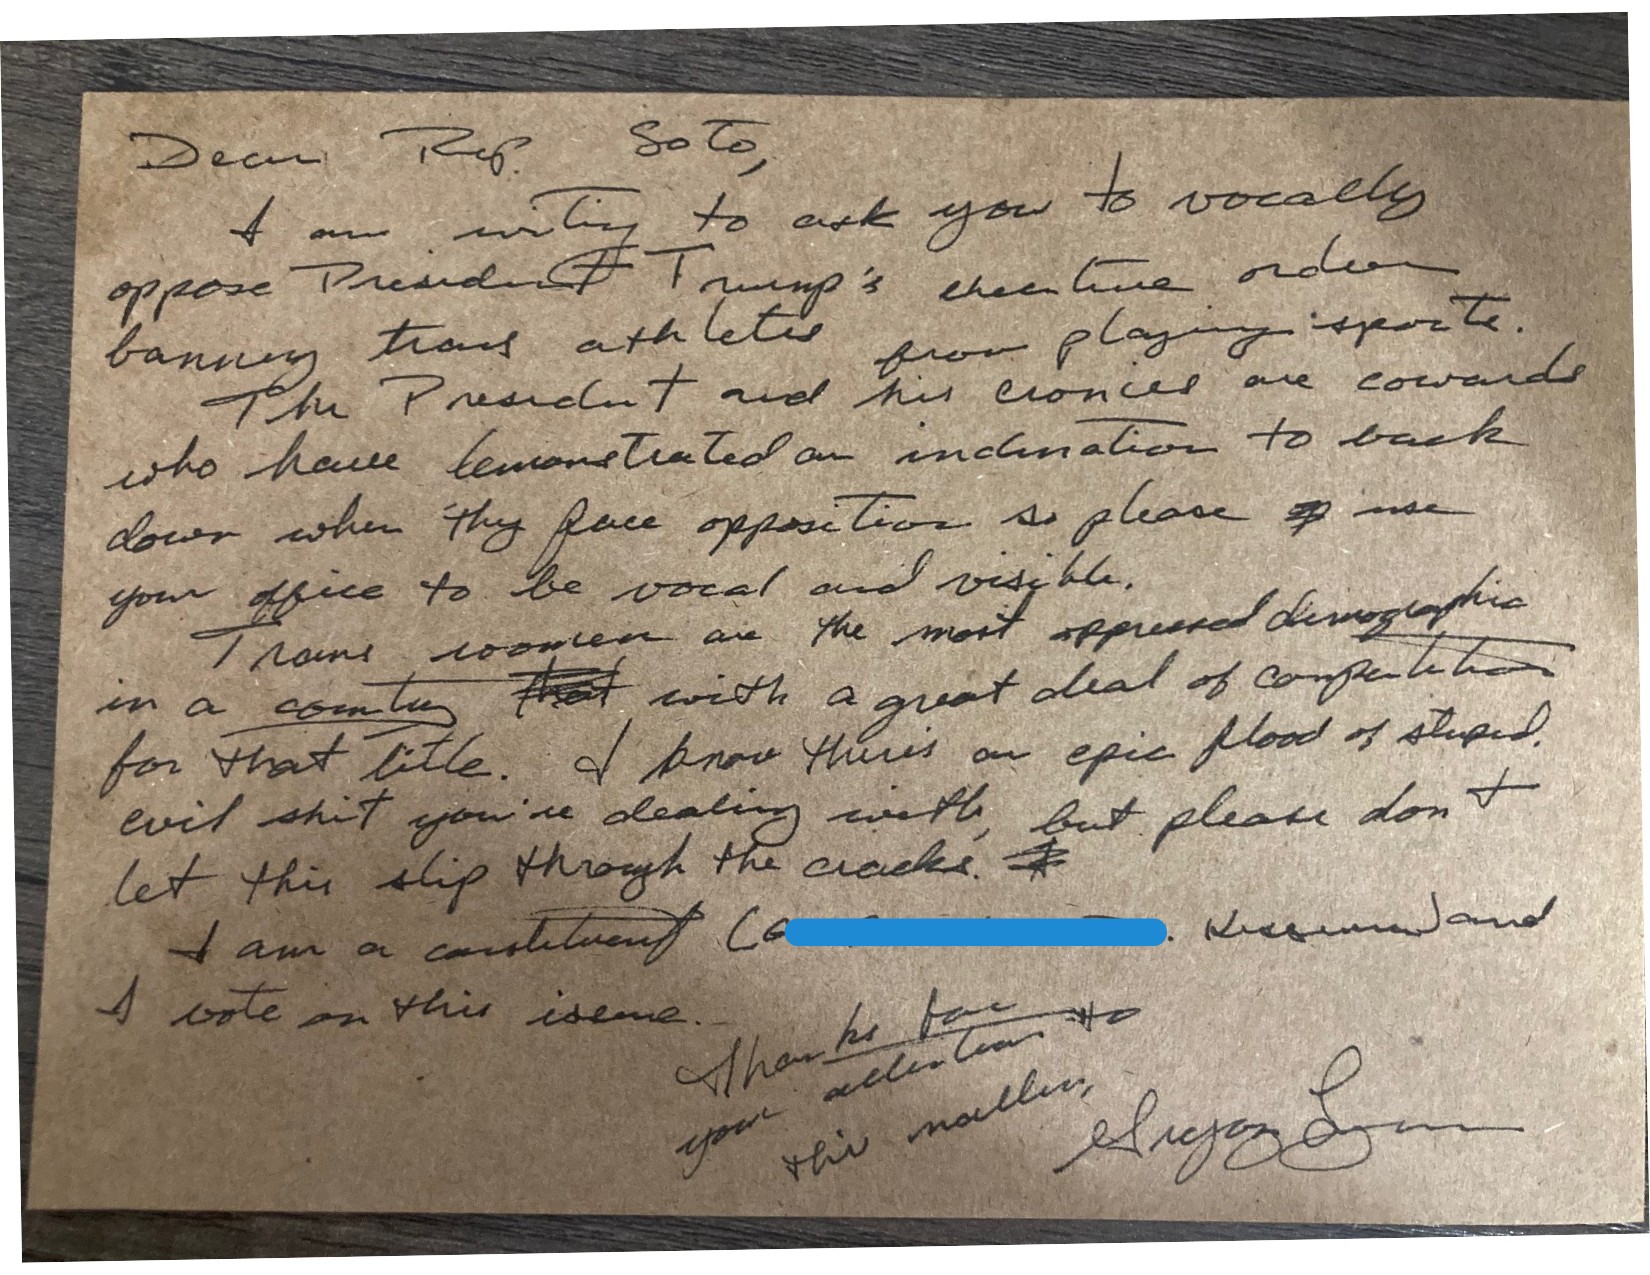 Dear Rep. Soto,
I am writing to ask you to vocally
oppose President Trump's executive order
banning trans athletes from playing sports.
The President and his cronies are cowards
who have demonstrated an inclination to back
down when they face opposition so please use
your office to be vocal and visible.
Trans women are the most oppressed demographic
in a country with a great deal of competition
for that title. I know there's an epic flood of stupid,
evil shit you're dealing with, but please don't
let this slip through the cracks.
I am a constituent ( . Kissimmee) and
I vote on this issue.
Thanks for
your attention to
this matter,